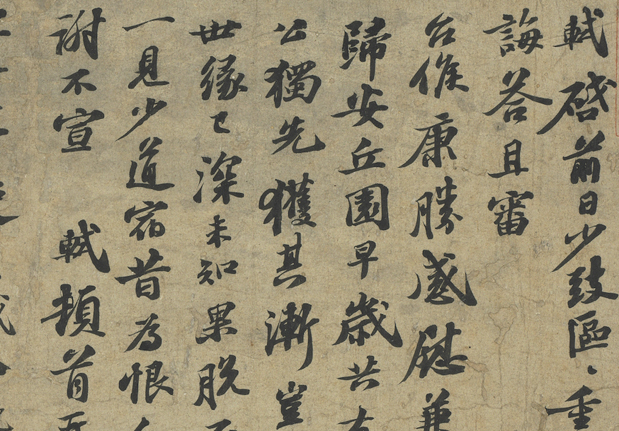 軾啓前日少致區〻重
誨答且審
台候康勝感慰兼
歸安丘園早歲共有
公獨先獲其漸豈
世緣已深未知果脫
一見少道宿昔為恨
謝不宣 軾頓首再